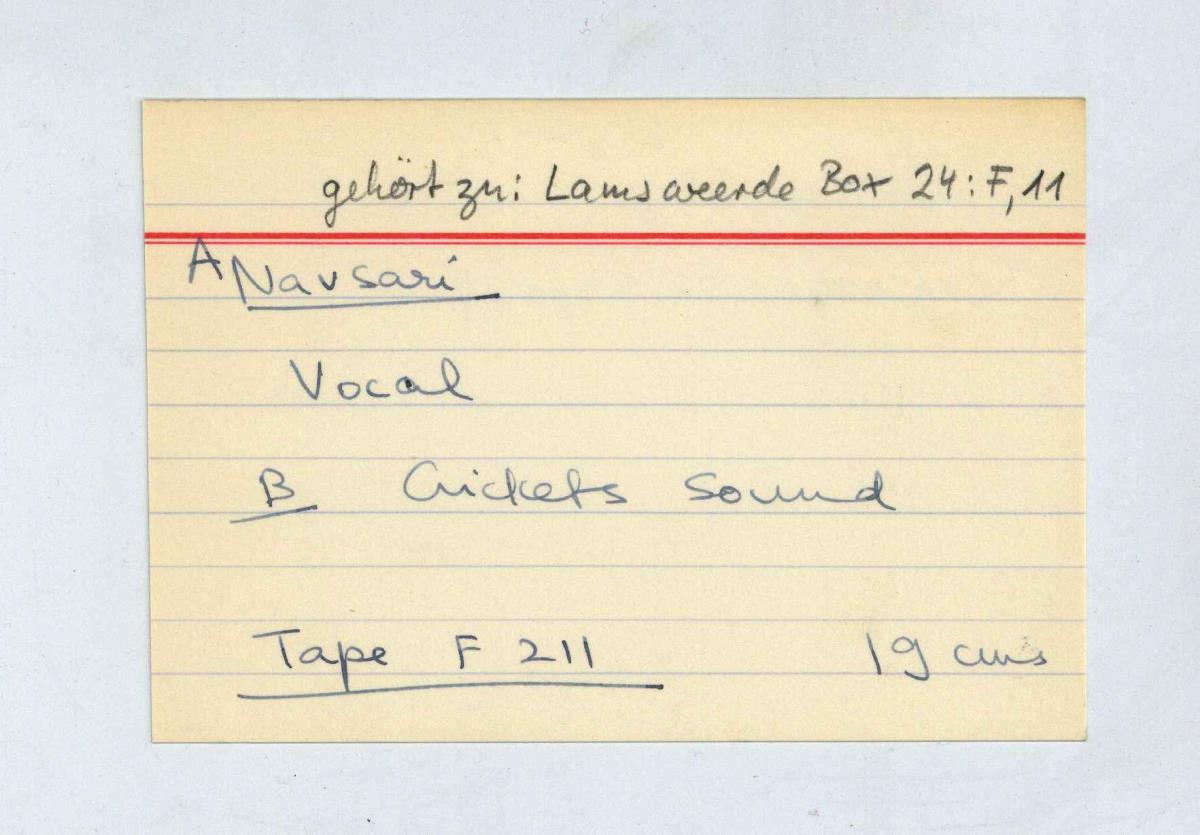 gehört zu: Lamsweerde Box 24: F, 11
A Navsari
Vocal
B Crickets Sound
Tape F 211 19 cms